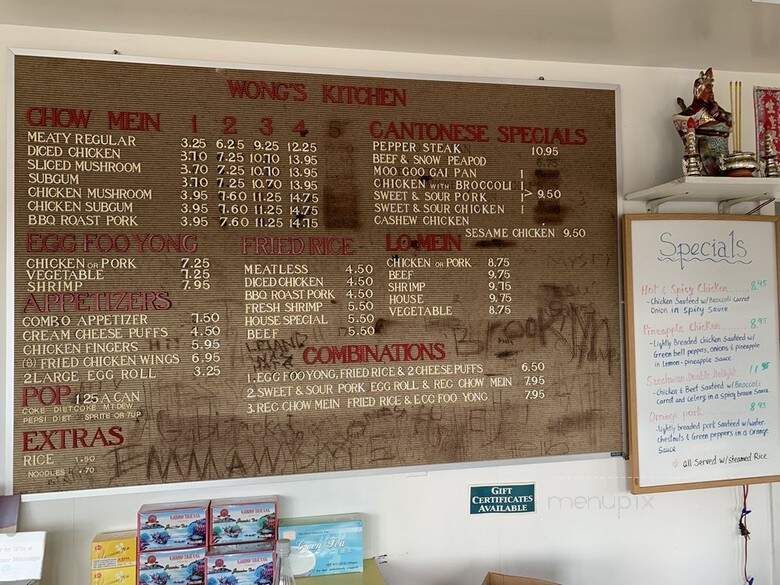 WONG'S KITCHEN
CHOW MEIN 1 2 3 4 5
MEATY REGULAR 3.25 6.25 9.25 12.25
DICED CHICKEN 3.70 7.25 10.70 13.95
SLICED MUSHROOM 3.70 7.25 10.70 13.95
SUBGUM 3.70 7.25 10.70 13.95
CHICKEN MUSHROOM 3.95 7.60 11.25 14.75
CHICKEN SUBGUM 3.95 7.60 11.25 14.75
BBQ ROAST PORK 3.95 7.60 11.25 14.75
CANTONESE SPECIALS
PEPPER STEAK 10.95
BEEF & SNOW PEAPOD
MOO GOO GAI PAN
CHICKEN WITH BROCCOLI
SWEET & SOUR PORK > 9.50
SWEET & SOUR CHICKEN
CASHEW CHICKEN
SESAME CHICKEN 9.50
EGG FOO YONG
CHICKEN OR PORK 7.25
VEGETABLE 7.25
SHRIMP 7.95
FRIED RICE
MEATLESS 4.50
DICED CHICKEN 4.50
BBQ ROAST PORK 4.50
FRESH SHRIMP 5.50
HOUSE SPECIAL 5.50
BEEF 5.50
LO MEIN
CHICKEN OR PORK 8.75
BEEF 9.75
SHRIMP 9.75
HOUSE 9.75
VEGETABLE 8.75
APPETIZERS
COMBO APPETIZER 7.50
CREAM CHEESE PUFFS 4.50
CHICKEN FINGERS 5.95
(8) FRIED CHICKEN WINGS 6.95
2 LARGE EGG ROLL 3.25
COMBINATIONS
1. EGG FOO YONG, FRIED RICE & 2 CHEESE PUFFS 6.50
2. SWEET & SOUR PORK EGG ROLL & REG CHOW MEIN 7.95
3. REG CHOW MEIN FRIED RICE & EGG FOO YONG 7.95
POP 1.25 A CAN
COKE DIET COKE MT DEW
PEPSI DIET SPRITE OR 7UP
EXTRAS
RICE 1.50
NOODLES .70
Brooks
EMMA
Specials
Hot & Spicy Chicken 8.95
- Chicken Sauteed w/Broccoli Carrot
Onion in Spicy Sauce
Pineapple Chicken 8.95
- Lightly Breaded chicken Sauteed w/
Green bell peppers, onions & pineapple
in Lemon-pineapple Sauce
Szechwan Double Delight
- chicken & Beef Sauteed w/Broccoli
Carrot and Celery in a Spicy brown Sauce
Orange Pork 8.95
- Lightly breaded pork Sauteed w/water
chestnuts & Green peppers in a Orange
Sauce
all Served w/steamed Rice
GIFT
CERTIFICATES
AVAILABLE
menupix
Green Tea